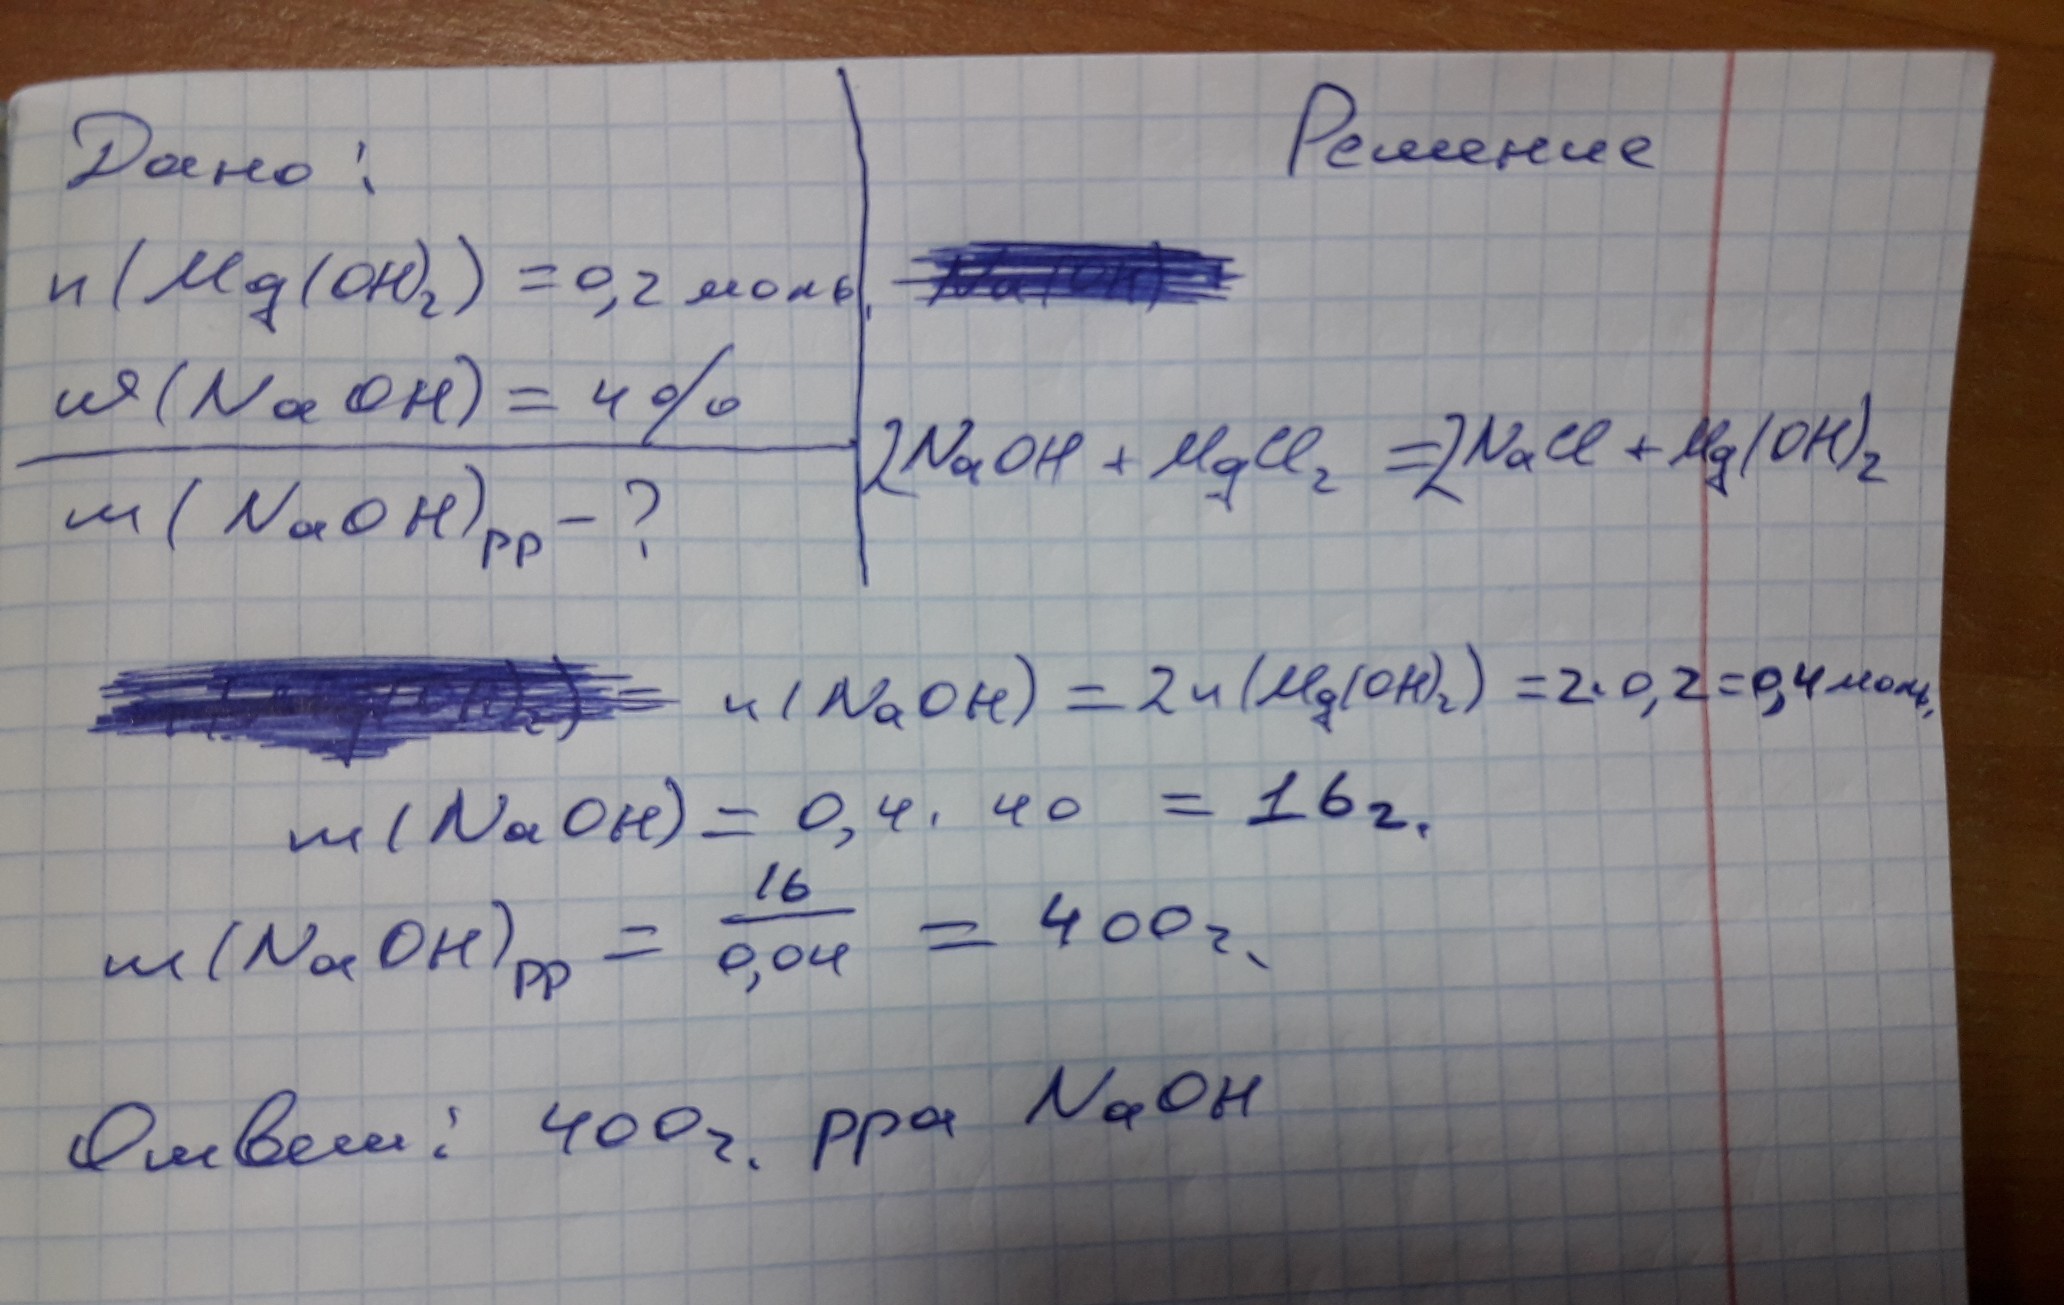 Дано:
n(Mg(OH)₂) = 0,2 моль.
ω(NaOH) = 4%
m(NaOH)рр - ?
Решение
2NaOH + MgCl₂ = 2NaCl + Mg(OH)₂
n(NaOH) = 2n(Mg(OH)₂) = 2·0,2 = 0,4 моль.
m(NaOH) = 0,4 · 40 = 16г.
m(NaOH)рр = 16/0,04 = 400г.
Ответ: 400г. рра NaOH